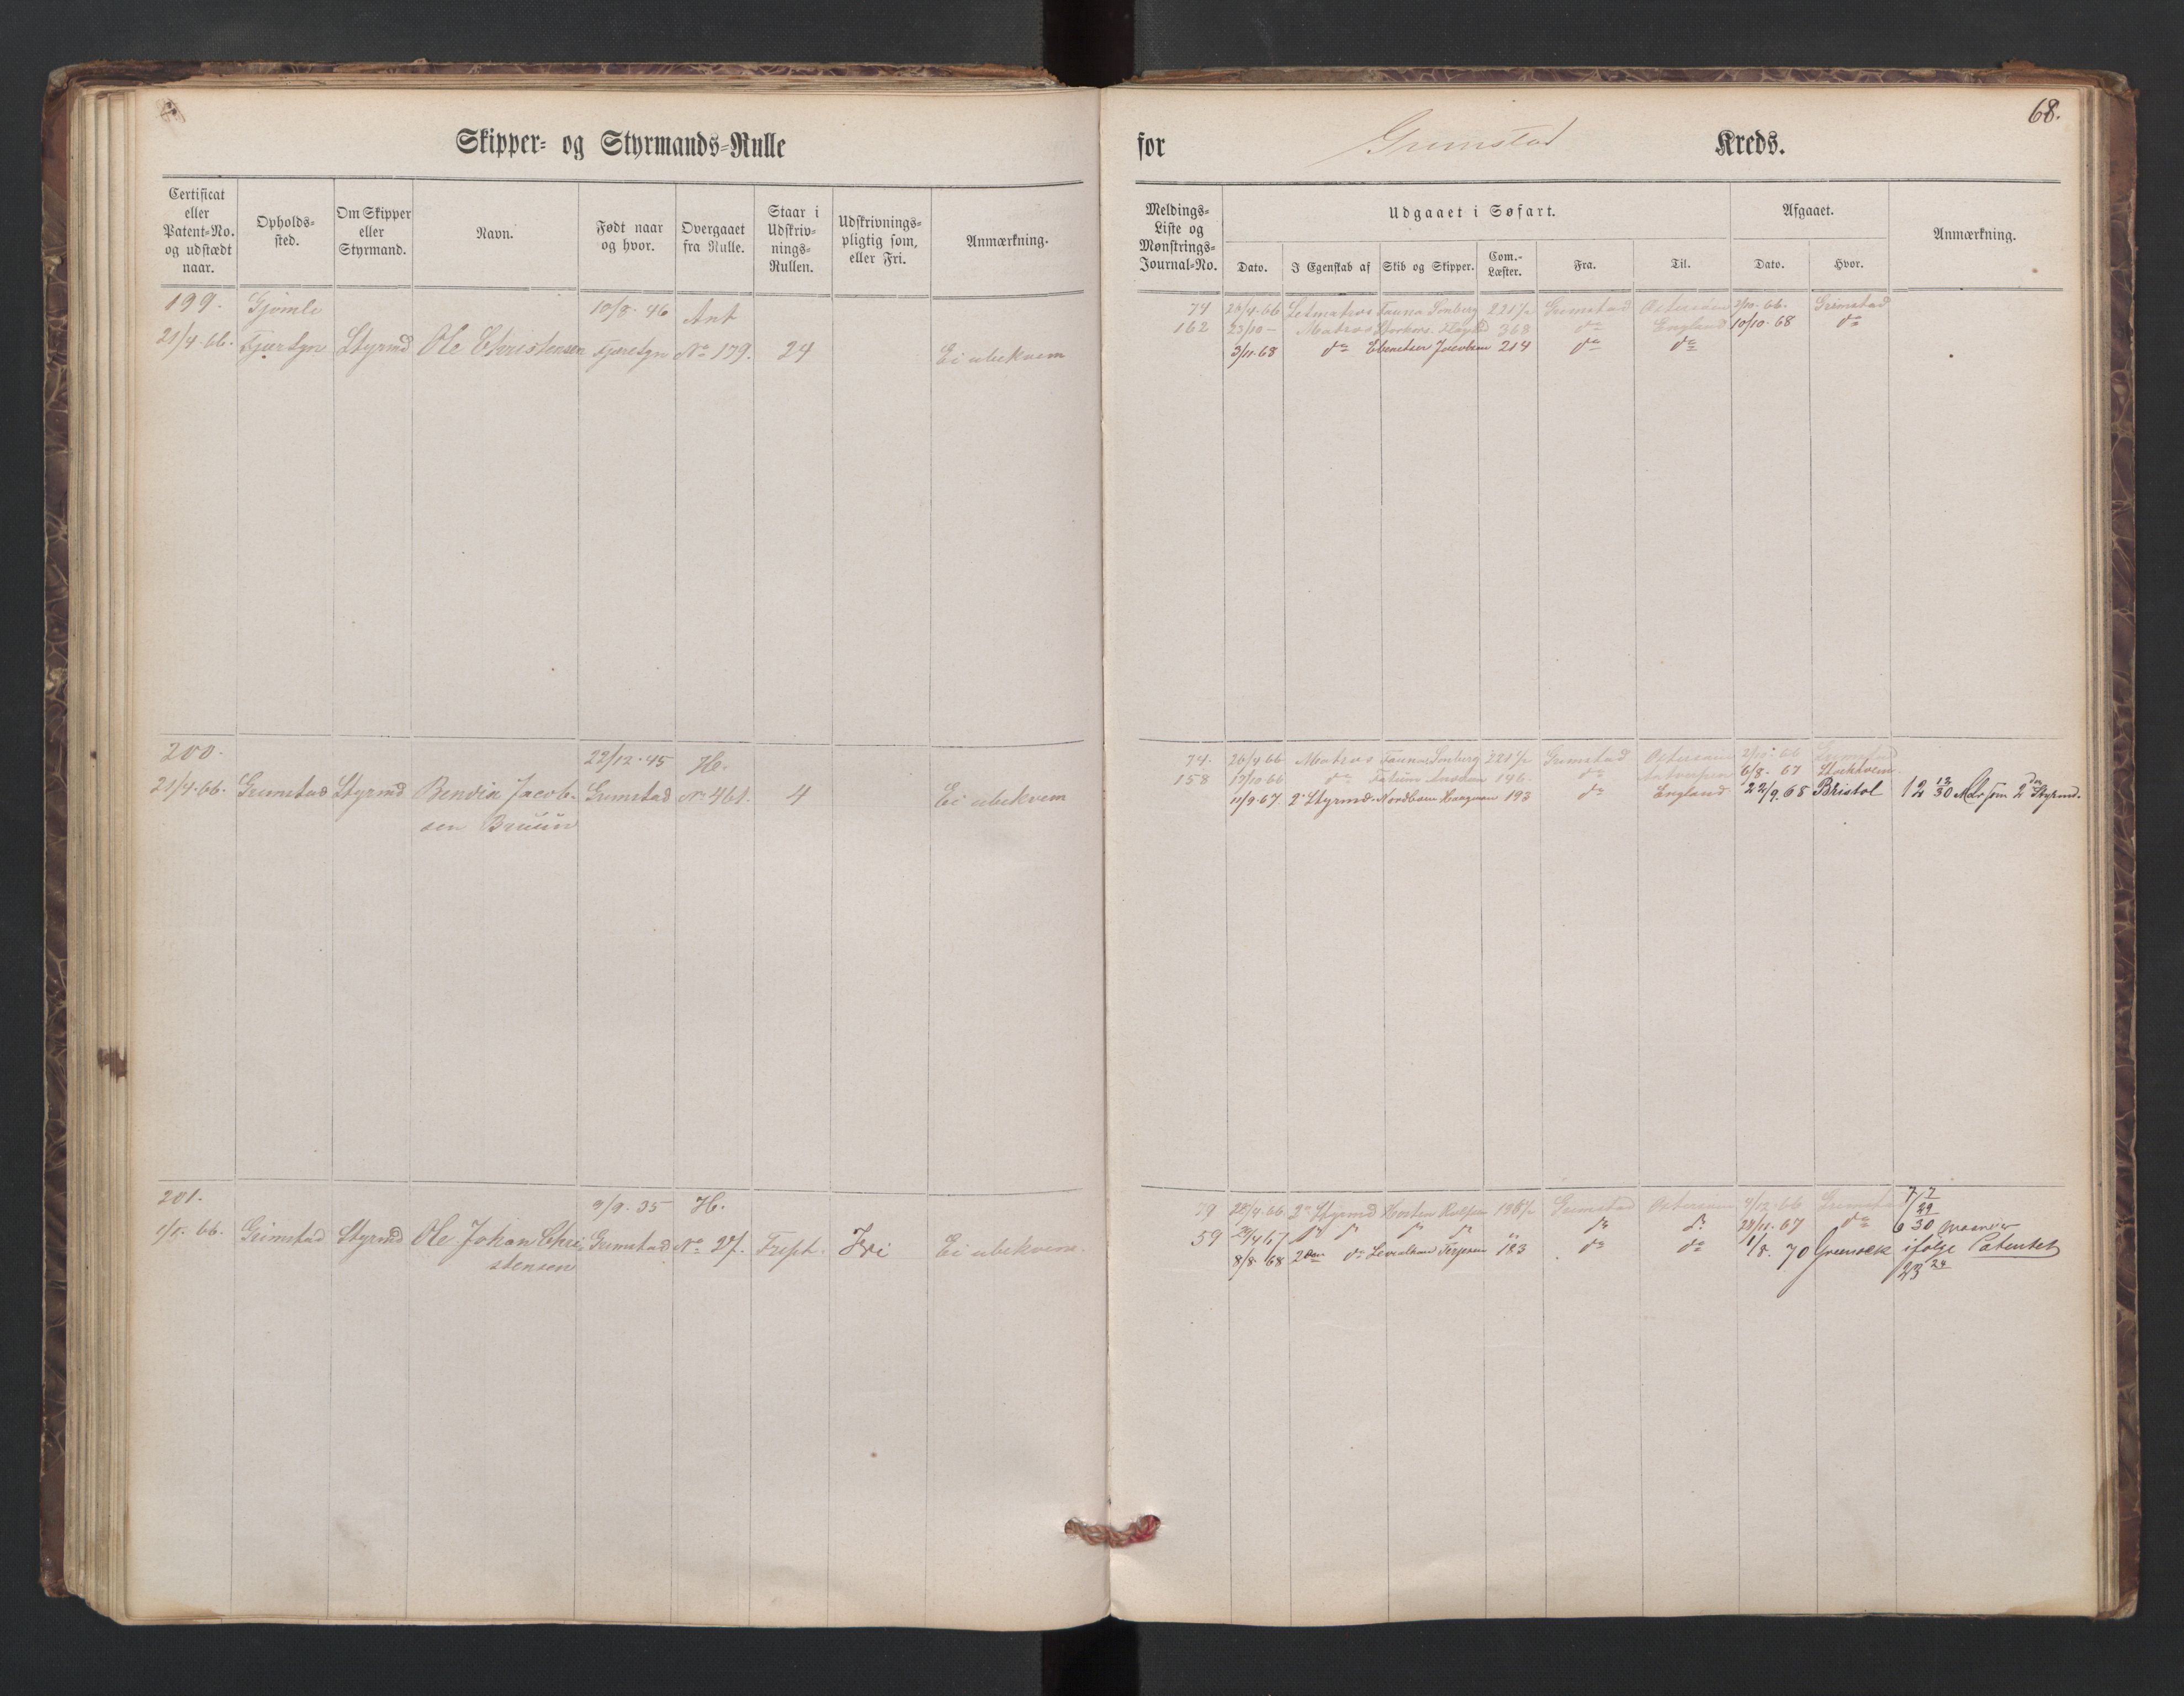 68.
Skipper- og Styrmands-Rulle
for Grimstad Kreds.
Certificat eller Patent-No. og udstædt naar.
Opholds-sted.
Om Skipper eller Styrmand.
Navn.
Født naar og hvor.
Overgaaet fra Rulle.
Staar i Udskriv-nings-Rullen.
Udskrivnings-pligtig som, eller Fri.
Anmærkning.
Meldings-Liste og Mønstrings-Journal-No.
Udgaaet i Søfart.
Dato. I Egenskab af Skib og Skipper. Com.-Læster. Fra. Til.
Afgaaet.
Dato. Hvor.
Anmærkning.
199. Gjömle 10/8. 46 Ant
21/4. 66. Fjæresgn Styrmd Ole Christensen Fjæresgn No 179. 24 Ei ubekvem
74 26/4. 66 Letmatros Fauna Sönberg 221½ Grimstad Østersøen 2/10. 66. Grimstad
162 23/10 – Matros 368 do England 10/10. 68 do
3/11. 68 do Ebenetser Jacobsen 214 do do
200. 22/12. 45 H.
21/4. 66. Grimstad Styrmd Bendix Jacob- Grimstad No 461. 4 Ei ubekvem
sen Bruun
74. 26/4 66 Matros Fauna Sönberg 221½ Grimstad Østersøen 2/10. 66 Grimstad
158 17/10 66 do 146 do Antwerpen 6/8. 67
11/9. 67. 2n Styrmd Nordhavn 193 do England 22/9. 68 Bristol 12 13/30 Mdr som 2den Styrmd.
201. 9/9. 35 H.
1/5. 66. Grimstad Styrmd Ole Johan Chri- Grimstad No 27. Fripl. Fri Ei ubekvem.
stensen
79 28/4. 66 2n Styrmd 198½ Grimstad Østersøen 4/12. 66 Grimstad 7/7
59 29/4 67 do do do do " do do 29/11. 67 do 6 29/30 Maaneder
8/8. 68 2den do Leviathan Terjesen 123 do do 1/8. 70 ifølge Patentet
23 24